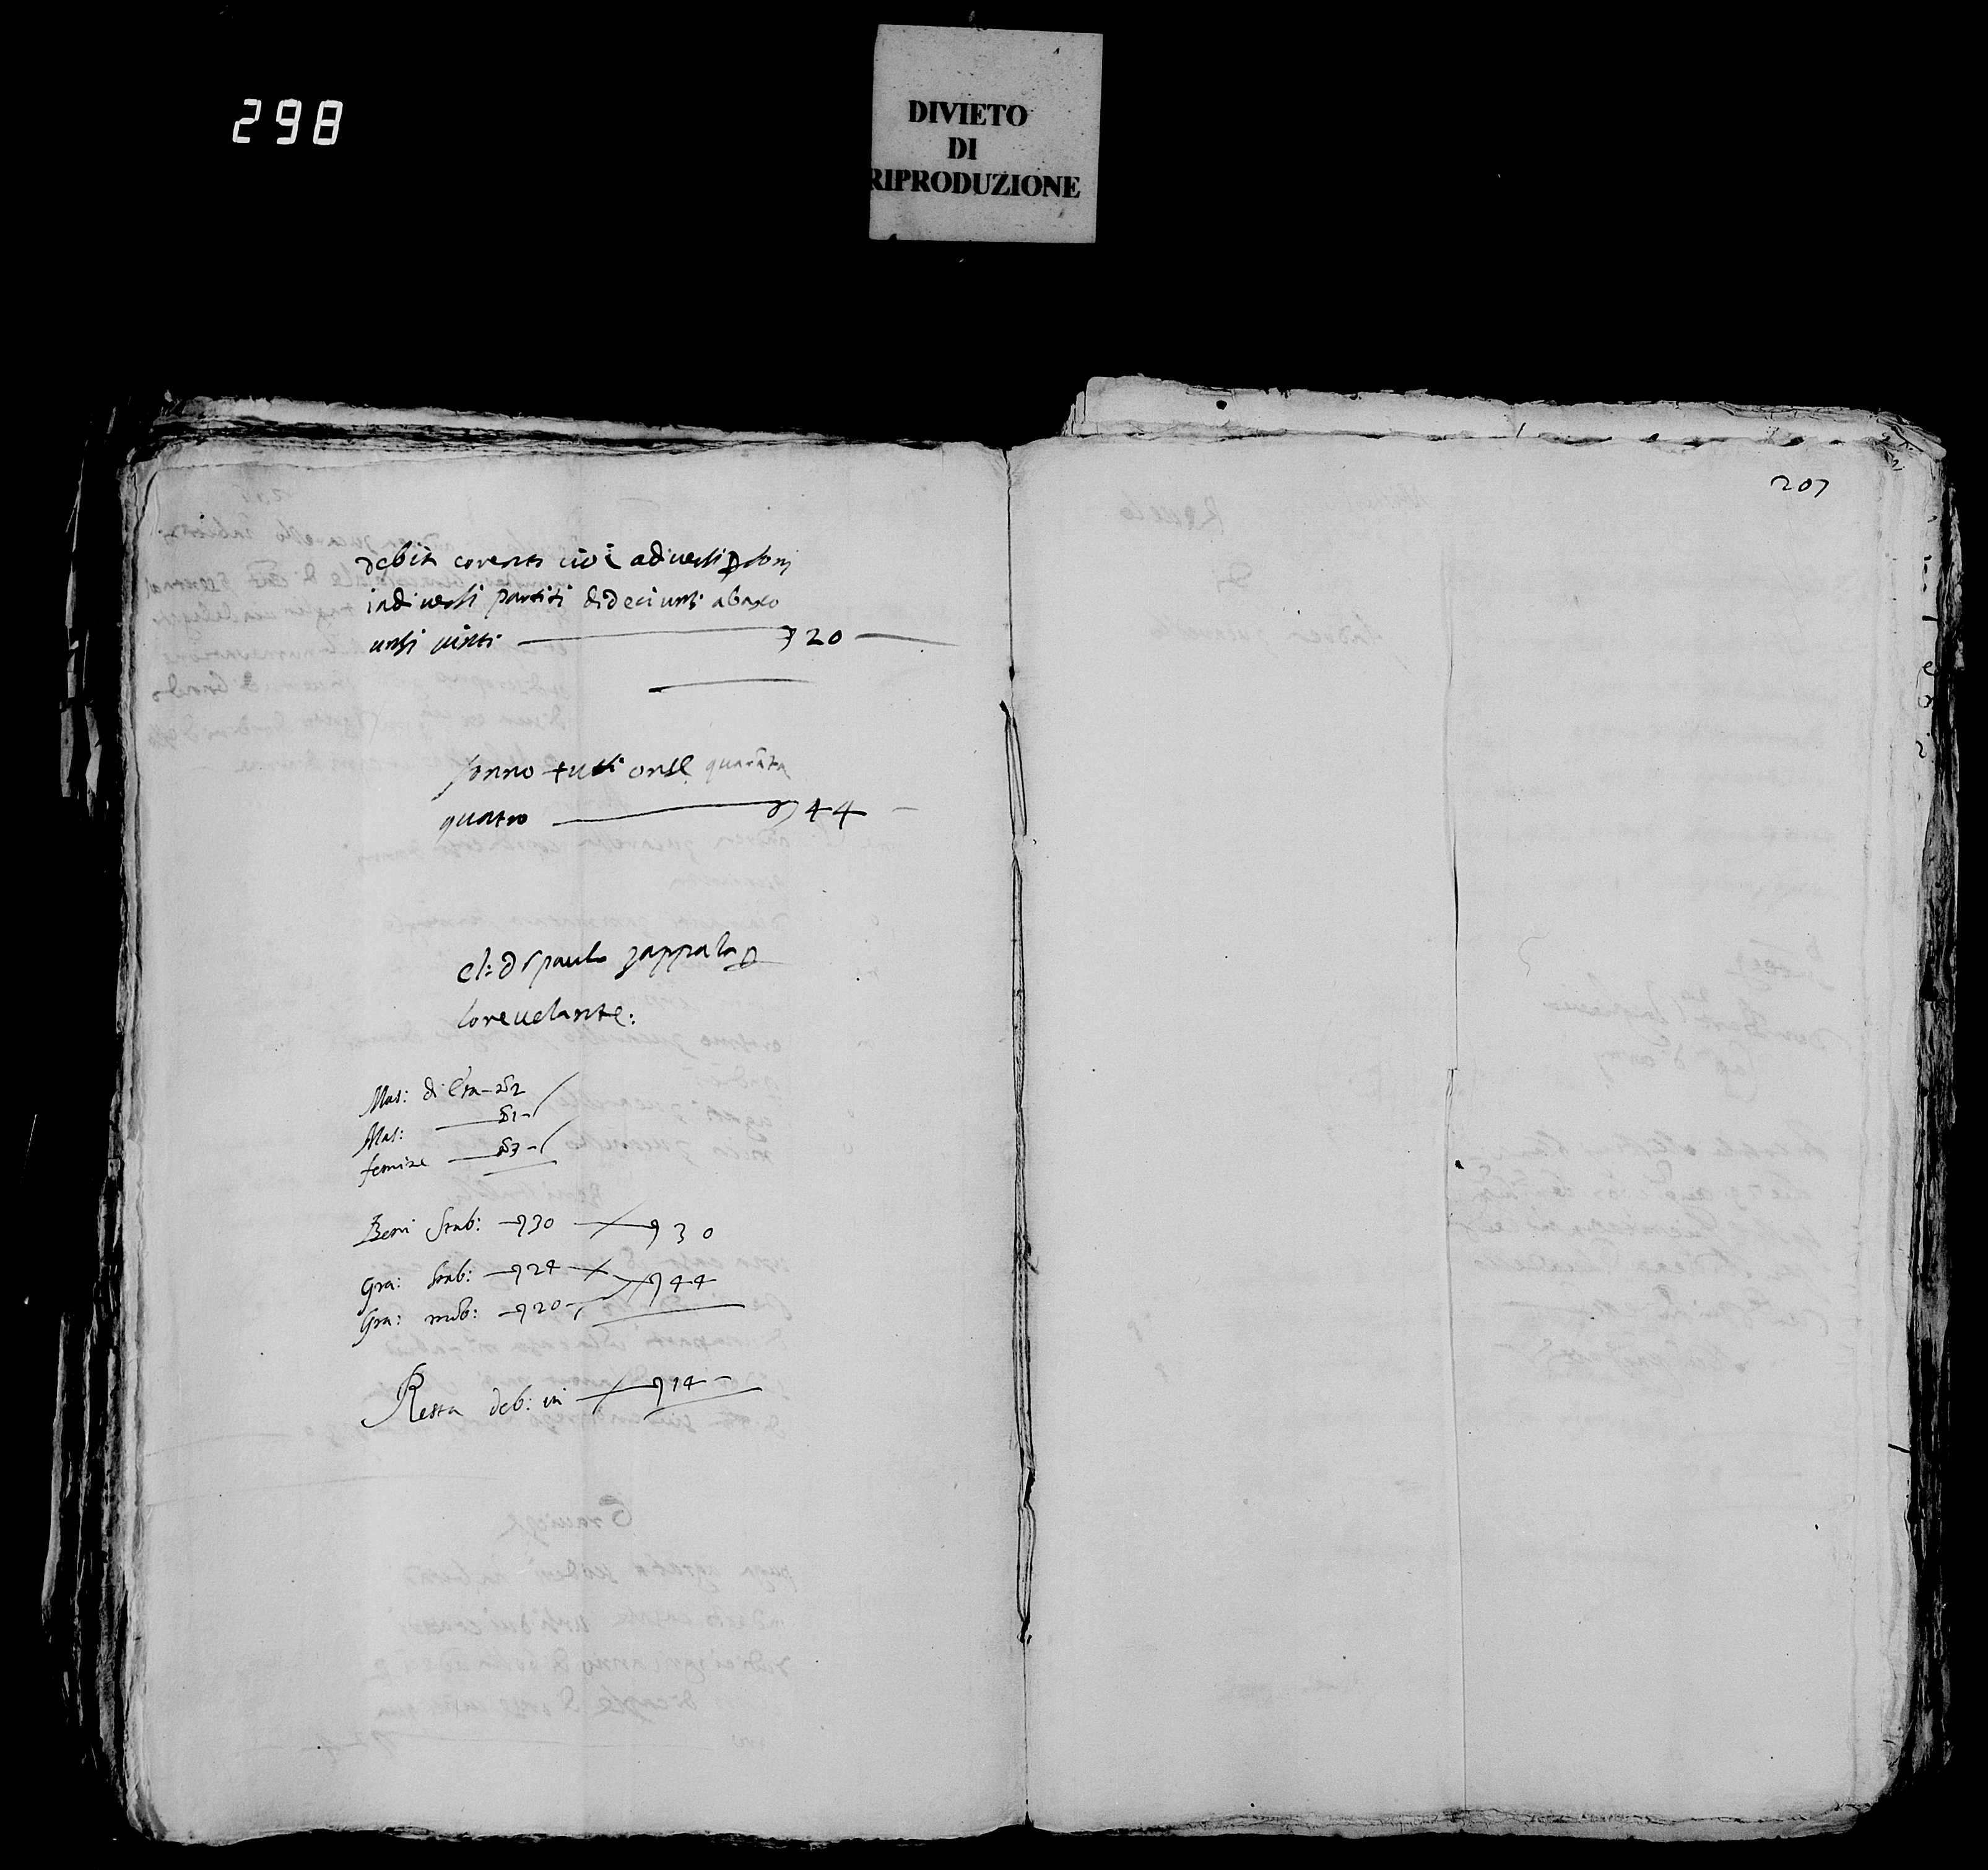 298
DIVIETO
DI
RIPRODUZIONE
207
debiti correnti cioè adiversi ꝑsoni
indiversi partiti dideci unzi abaxo
unzi vinti 20
sonno tutti onze quarāta
quatro 44
cl: Paulo zappala ꝑ
lo revelante:
Mas: di Età 2
Mas: 1
femine 3
Beni Stab: 30 30
Gra: Stab: 24 44
Gra: mob: 20
Resta deb: in 14